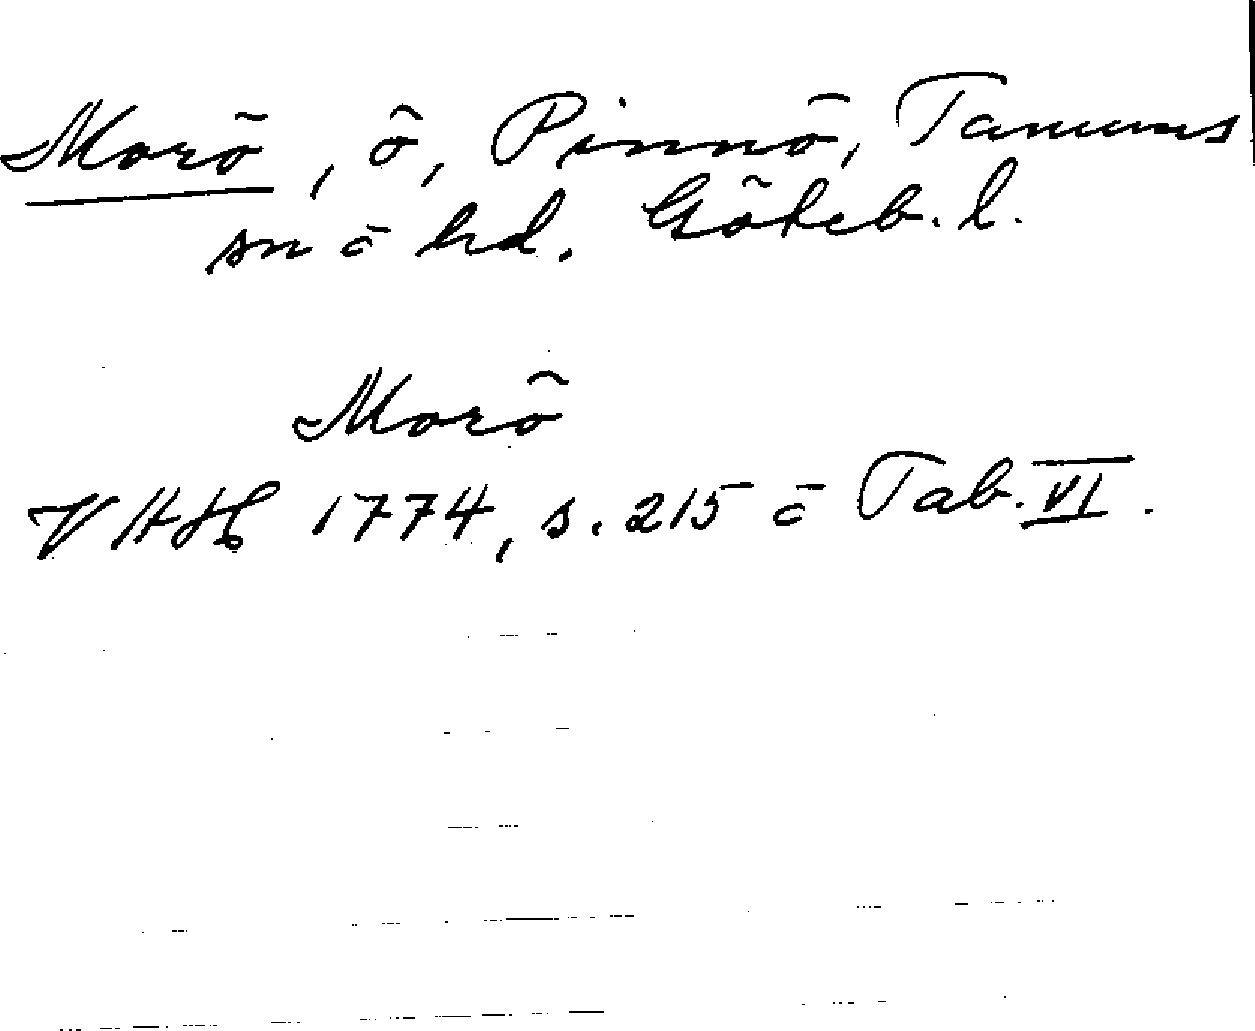 Morö, ö, Pinnö, Tanums
sn o hd. Göteb. l.
Morö
VAH 1774, s. 215 o Tab. VI.